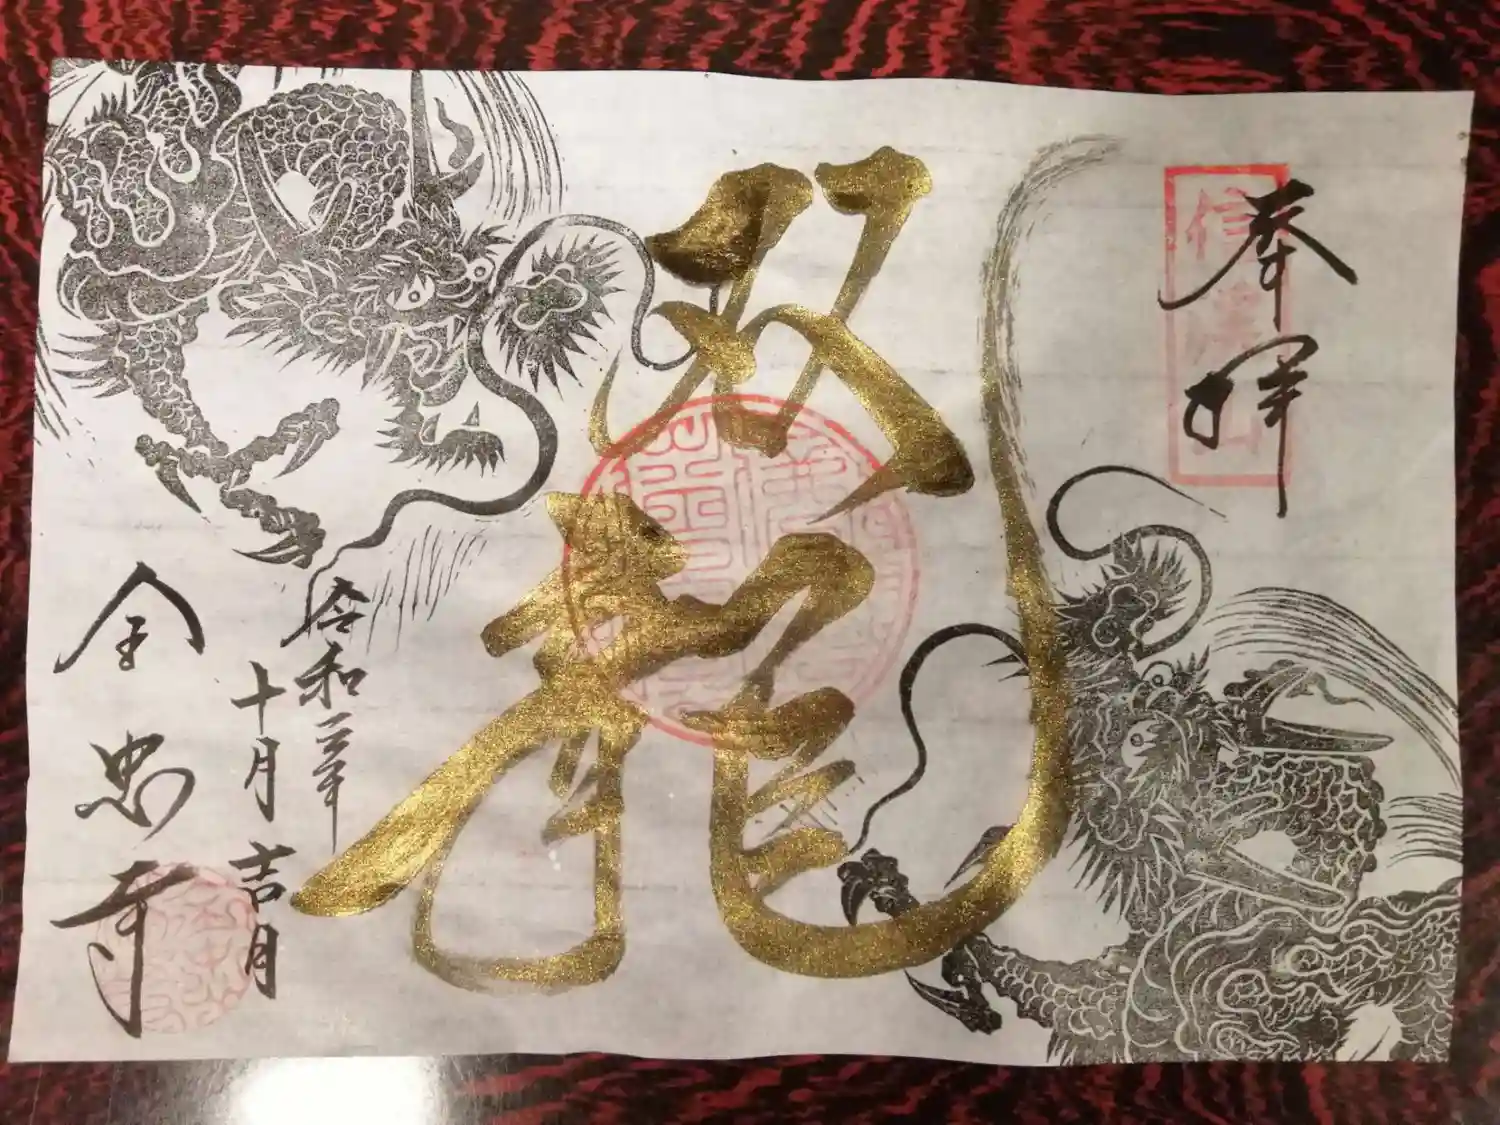 奉拝
双龍
令和二年
十月吉日
全忠寺